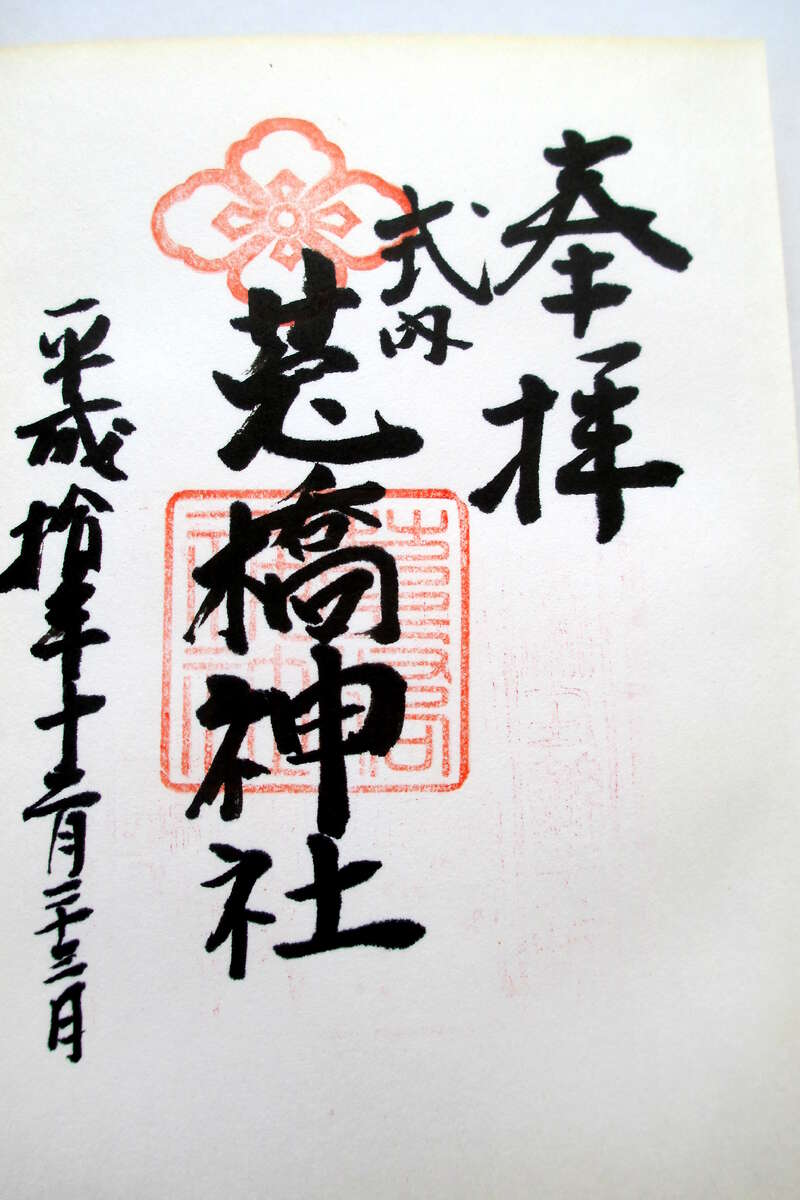 奉拝
式内
莵橋神社
平成拾年十二月二十三日